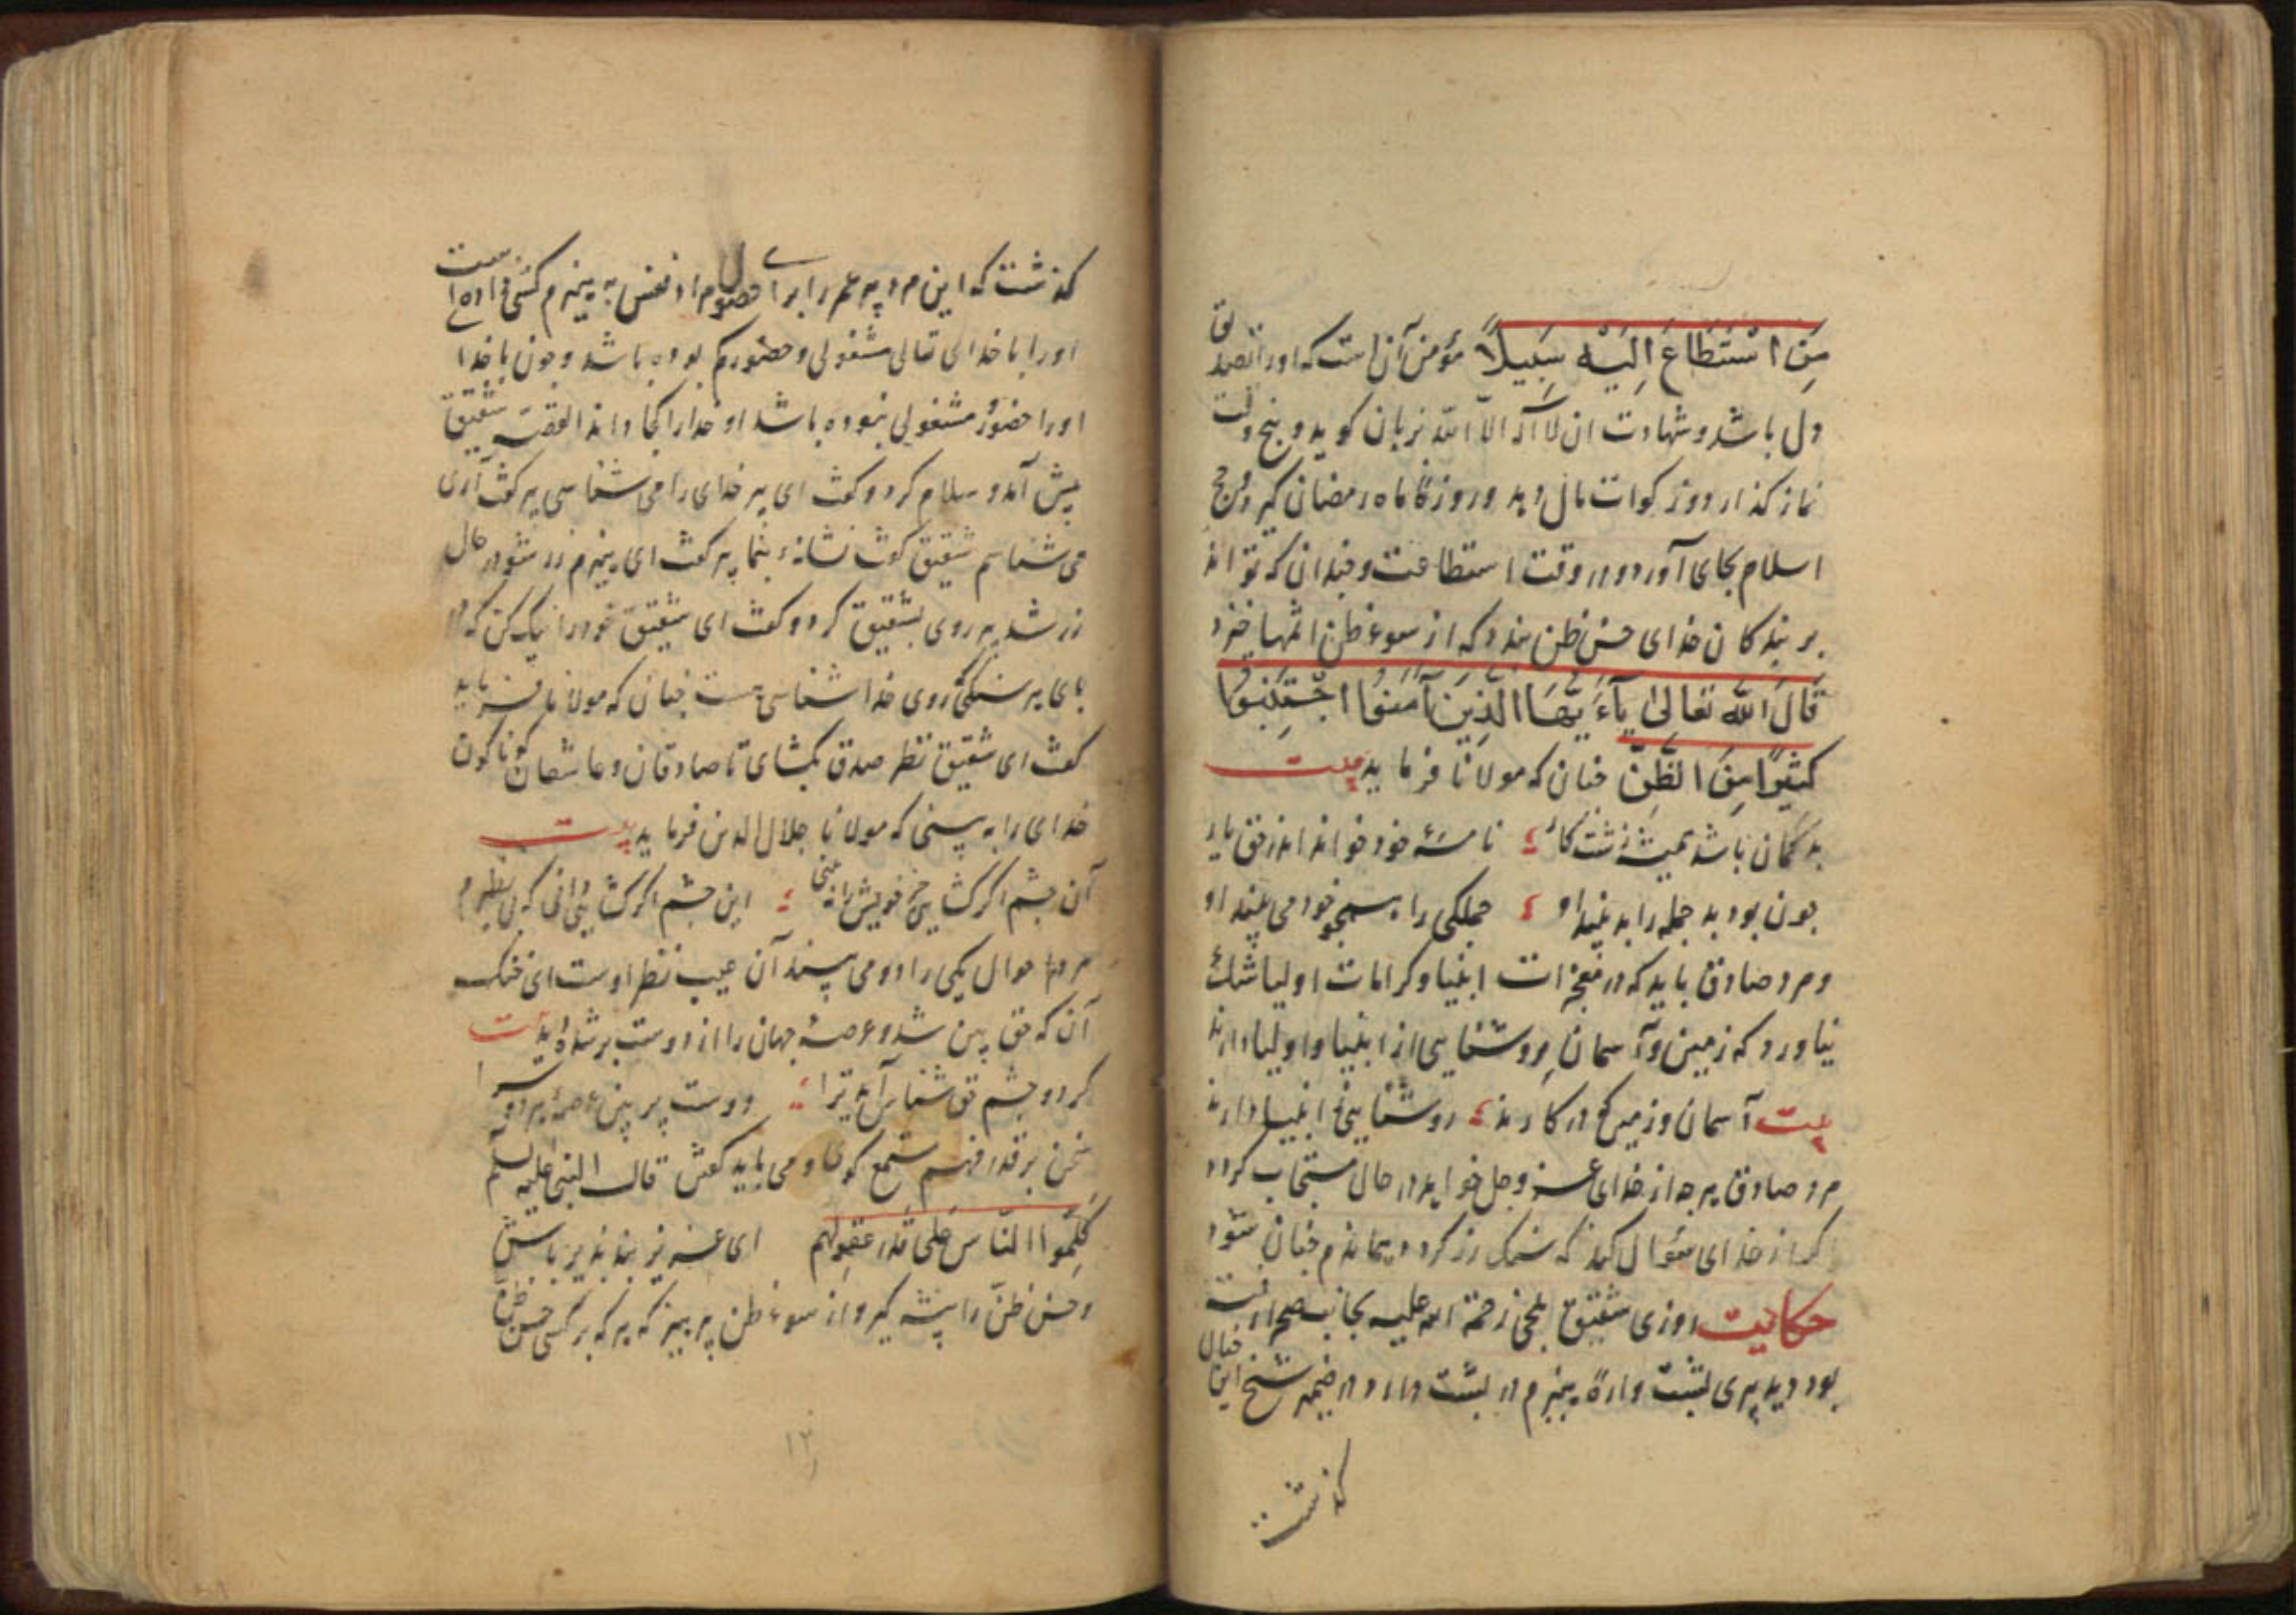 مَنِ اسْتَطَاعَ اِلَيْهِ سَبِيلاً مؤمن آن است که اورا تصدیق
دل باشد و شهادت ان لا اله الا الله بزبان کوید و پنج وقت
نماز کذارد و زکوات مال دهد و روزهٔ ماه رمضان کیرد و حج
اسلام بجای آورد در وقت استطاعت و چندان که تواند
بر بندکان خدای حسن ظن بندد که از سوء ظن اثمها خیزد
قَالَ اللّه تعَالیٰ یَآءَیُّهَا الَّذِینَ آمَنُوا اجْتَنِبُوا
کَثِیرًا مِنَ الظَّنِّ چنان که مولانا فرماید بیت
بد کمان باشد همیشه زشت کار نامهٔ خود خواند اندر حق یار
چون بود بد جمله را بد بیند او جملکی را همچو خود می بیند او
و مرد صادق باید که در معجزات انبیا و کرامات اولیا شک
نیاورد که زمین و آسمان روشنایی از انبیا و اولیا دارند
بیت آسمان و زمین که در کارند روشنایی ز انبیا دارند
مرد صادق هر چه از خدای عز و جل خواهد در حال مستجاب کردد
اکر از خدای سؤال کند که سنک زر کردد هماندم چنان شود
حکایت روزی شقیق بلخی رحمة الله علیه بجانب صحرا رفته
بود دید پیری پشت وارهٔ هیزم در پشت دارد در ضمیر شیخ این خیال
کذشت
کذشت که این مرد پیر عمر را برای حصول مراد نفس به هیزم کشی داده است
اورا با خدای تعالی مشغولی و حضور کم بوده باشد و چون با خدا
اورا حضور و مشغولی نبوده باشد او خدا را کجا داند القصه شقیق
پیش آمد و سلام کرد و کفت ای پیر خدای را می شناسی پیر کفت آری
می شناسم شقیق کفت نشانهٔ بنما پیر کفت ای هیزم زر شو در حال
زر شد پیر روی بشقیق کرد و کفت ای شقیق خود را نیک کن که در
پای هر سنکی روی خدا شناسی هست چنان که مولانا فرماید
کفت ای شقیق نظر صدق بکشای تا صادقان و عاشقان کوناکون
خدای را به بینی که مولانا جلال الدین فرماید بیت
آن چشم اکر کشایی جز خویش را نه بینی این چشم اکر کشایی دانی که بی نظیرم
مرد احوال یکی را دو می بیند آن عیب نظر اوست ای خنک
آن که حق بین شد و عرصهٔ جهان را از دوست پر شده دید بیت
کر دو چشم حق شناس آمد ترا دوست پر بین عرصهٔ هر دو سرا
سخن بر قدر فهم مستمع کوتاه می باید کفتن قال النبی علیه السلم
کَلِّمُوا النَّاسَ عَلی قَدرِ عُقُولِهِم ای عزیز پند پذیر باش
و حسن ظن را پیشه کیر و از سوء ظن بپرهیز که هر که بر کسی حسن ظن
۱۲